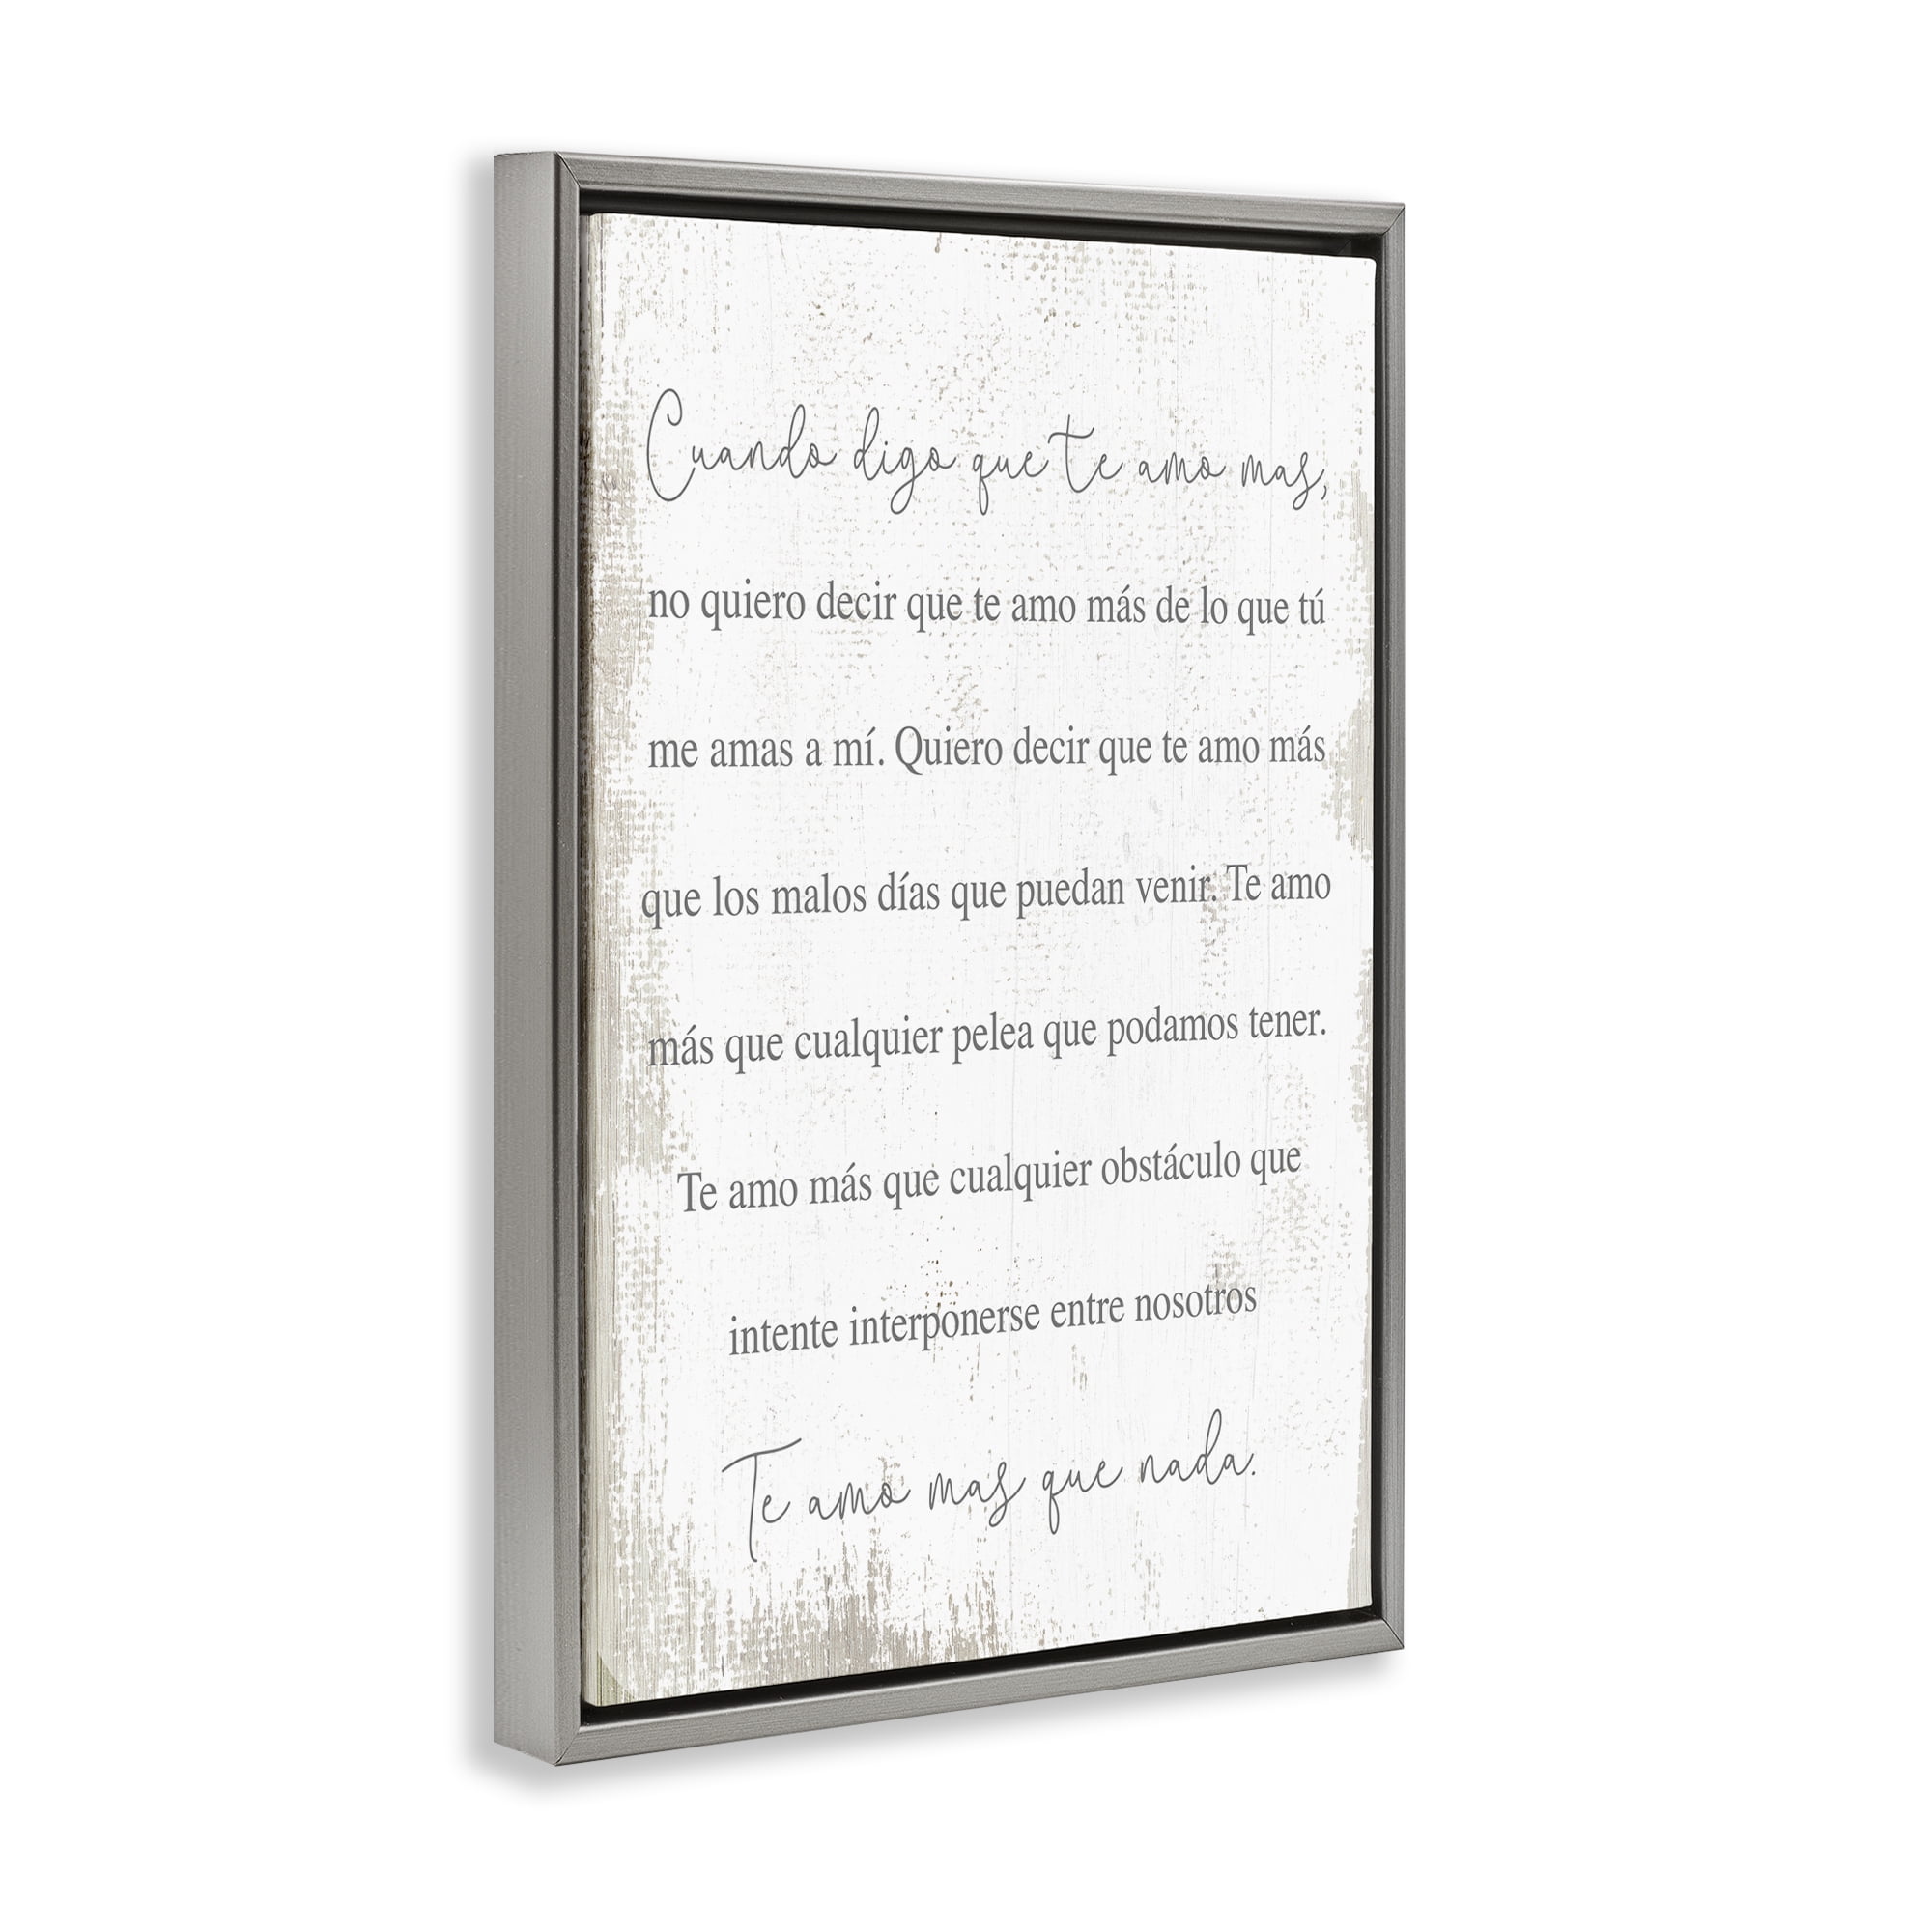 Cuando digo que te amo mas,
no quiero decir que te amo más de lo que tú
me amas a mí. Quiero decir que te amo más
que los malos días que puedan venir. Te amo
más que cualquier pelea que podamos tener.
Te amo más que cualquier obstáculo que
intente interponerse entre nosotros
Te amo mas que nada.